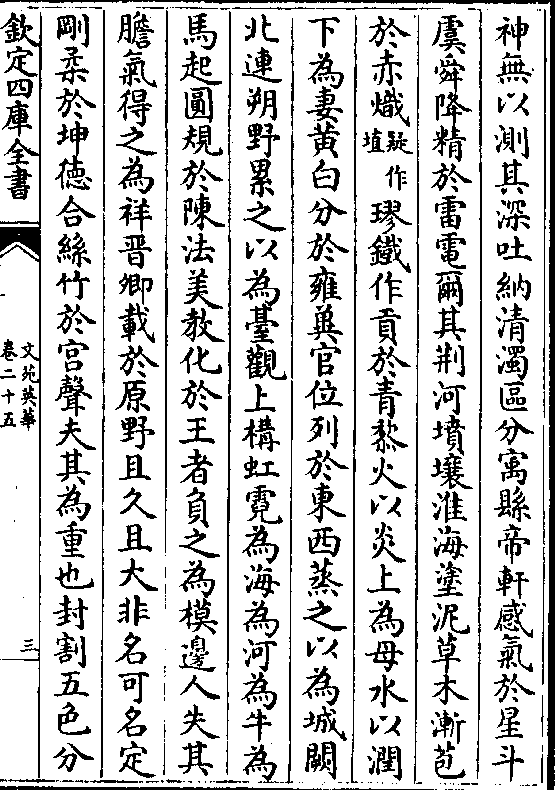 神無以測其深吐納清濁區分㝢縣帝軒感氣於星斗
虞舜降精於雷電爾其荆河墳壤淮海塗泥草木漸苞
於赤熾疑作埴璆鐵作貢於青黎火以炎上為母水以潤
下為妻黄白分於雍兾官位列於東西蒸之以為城闕
北連朔野累之以為臺觀上構虹霓為海為河為牛為
馬起圓規於陳法美教化於王者負之為模邊人失其
膽氣得之為祥晋卿載於原野且久且大非名可名定
剛柔於坤德合絲竹於宫聲夫其為重也封割五色分
欽定四庫全書
文苑英華
卷二十五
三